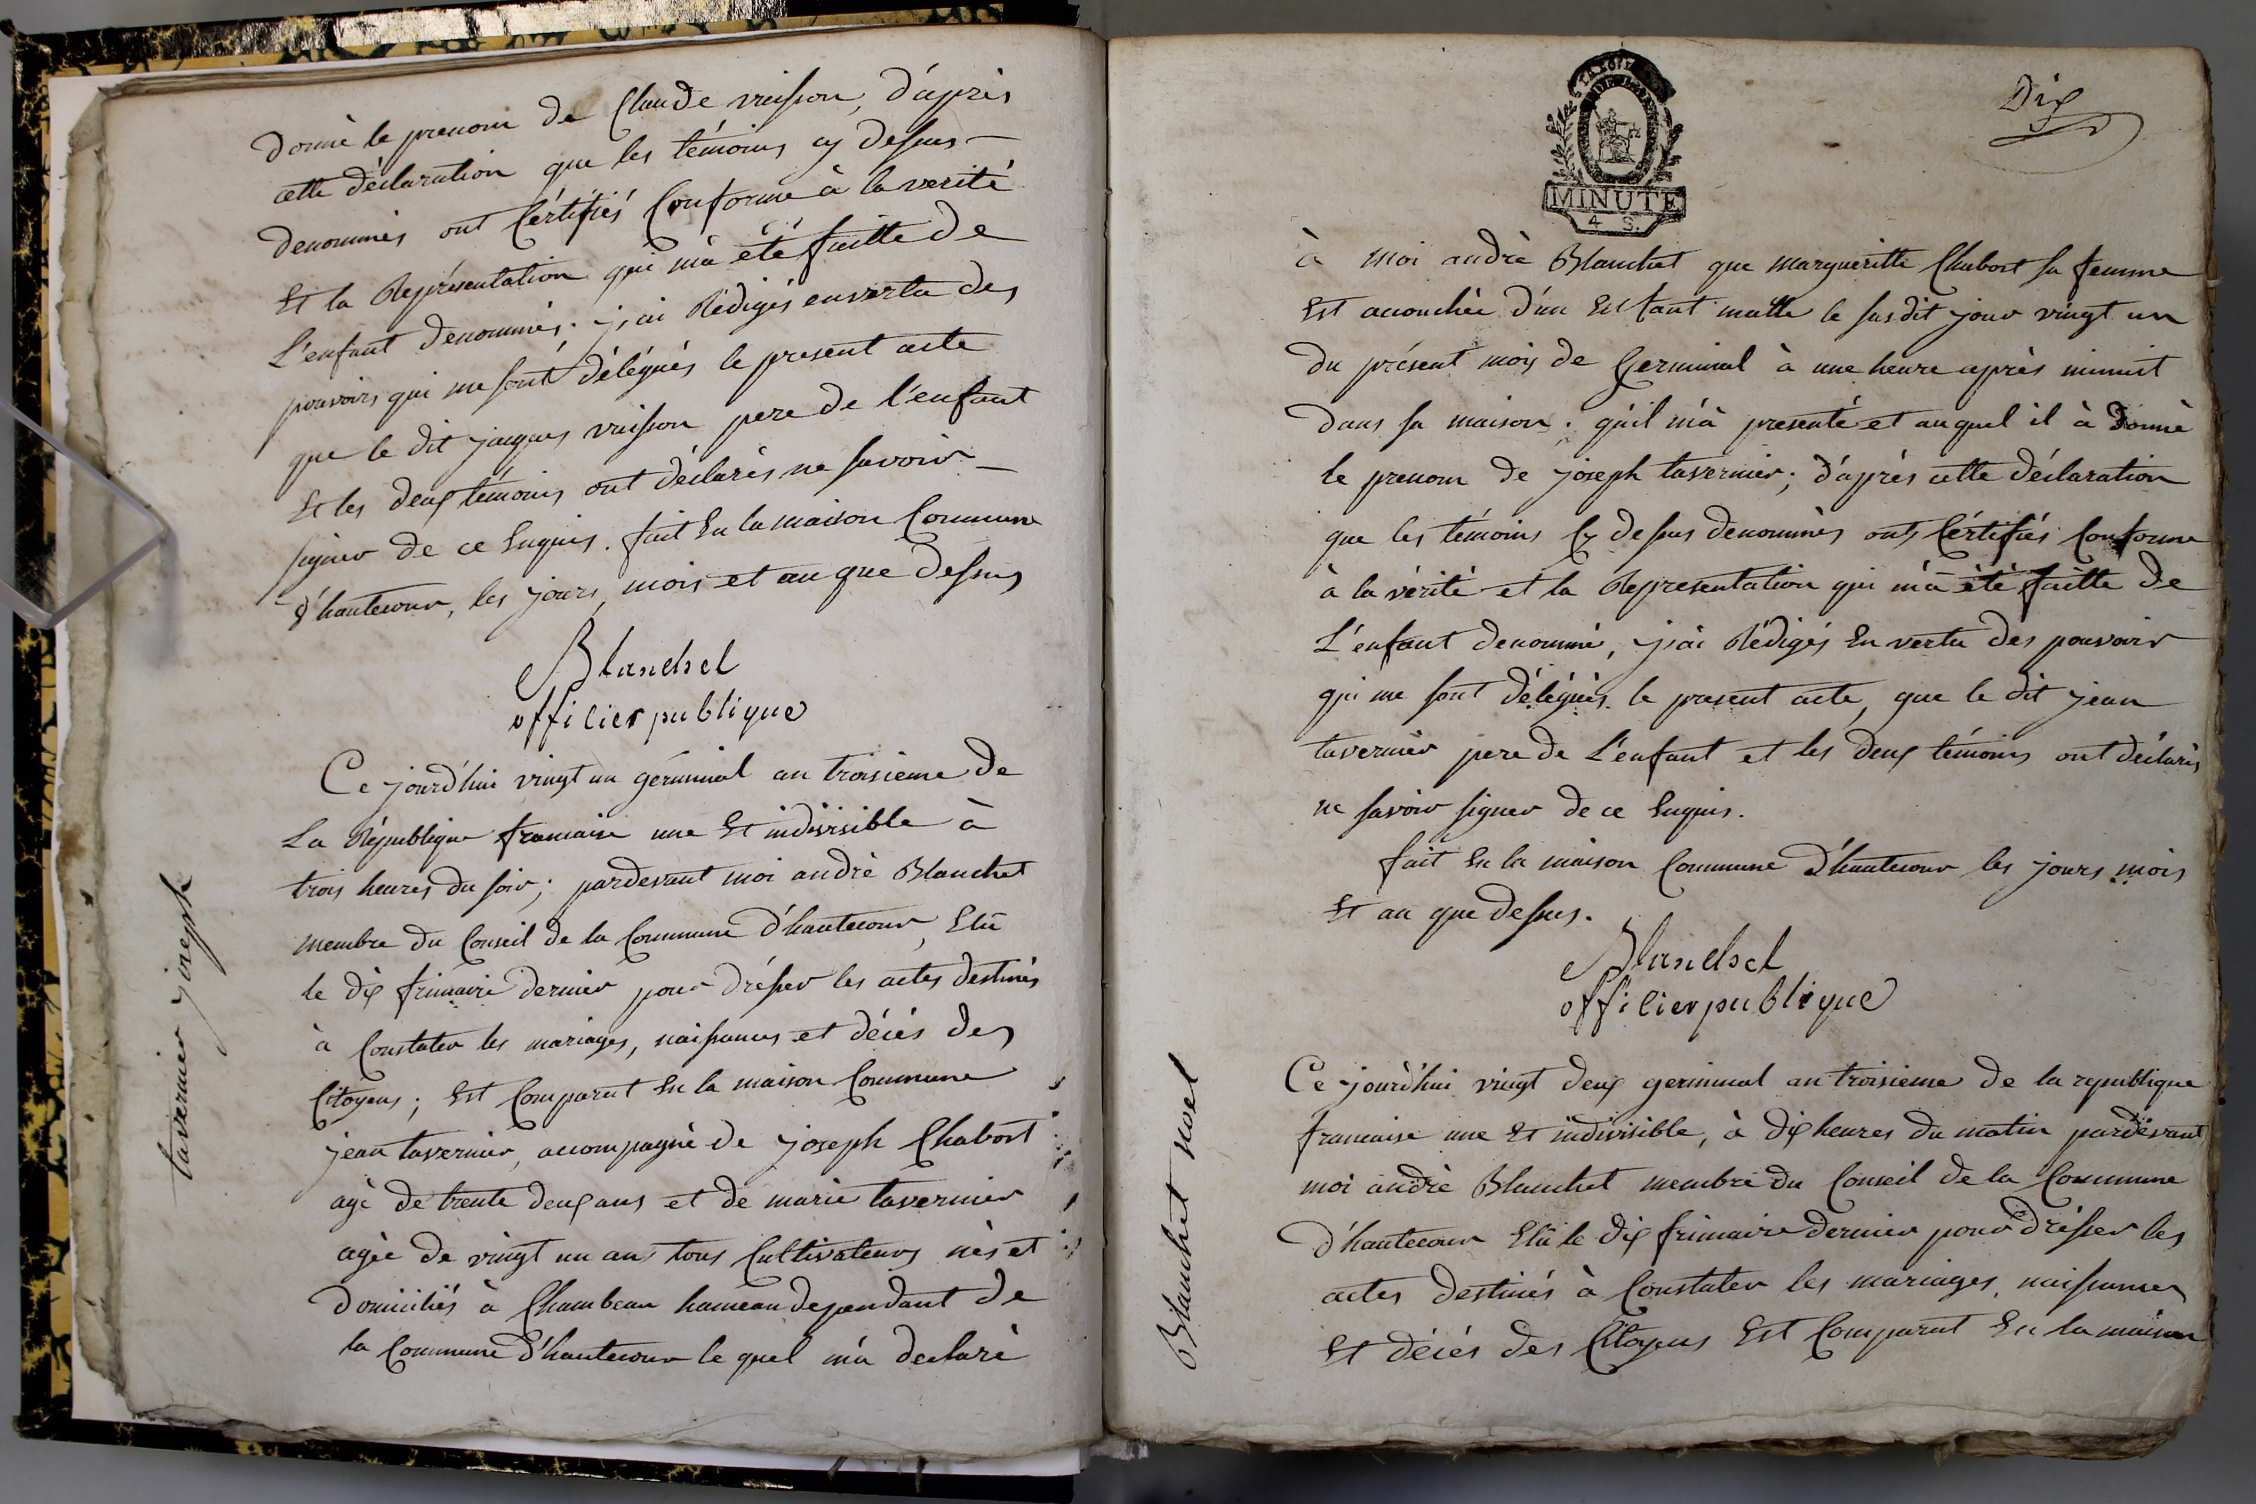 donné le prenom de Claude vuisson, d'après
cette déclaration que les témoins cy dessus
denommés ont Cértifiés Conforme à la verité
Et la Représentation qui m'a été faitte de
L'enfant denommés. j'ai Rédigés en vertu des
pouvoirs qui me sont délégués le present acte
que le dit jacques vuisson pere de l'enfant
Et les deux témoins ont déclarés ne savoir
signer de ce Enquis. fait En la maison Commune
d'hautecour, les jours, mois et an que dessus
Blanchet
officier publique
Ce jourd'hui vingt un gérminal an troisieme de
La République francaise une Et indivisible à
trois heures du soir; pardevant moi andré Blanchet
membre du Conseil de la Commune d'hautecour, Elû
le dix frimaire dernier pour drésser les actes destinés
à Constater les mariages, naissances et décés des
Citoyens; Est Comparut En la maison Commune
jean tavernier, accompagné de joseph Chabort
agé de trente deux ans et de marie tavernier
agée de vingt un an tous Cultivateurs nés et
domiciliés à Chambeau hameau dependant de
la Commune d'hautecour le quel m'a declaré
tavernier joseph
Dix
LA LOI
MINUTE
4 S.
à moi andré Blanchet que margueritte Chabort sa femme
Est accouchée d'un Enfant malle le susdit jour vingt un
du présent mois de Germinal à une heure après minuit
dans sa maison. qu'il m'à presenté et auquel il à donné
le prenom de joseph tavernier; d'après cette déclaration
que les témoins Cy dessus denommés onts Cértifiés Conforme
à la vérité et la Représentation qui m'a été faitte de
L'enfant denommé, j'ai Rédigés En vertu des pouvoirs
qui me sont délégués le present acte, que le dit jean
tavernier pere de L'enfant et les deux témoins ont déclarés
ne savoir signer de ce Enquis.
fait En la maison Commune d'hautecour les jours mois
Et an que dessus.
Blanchet
officier publique
Ce jourd'hui vingt deux germinal an troisieme de la republique
francaise une Et indivisible, à dix heures du matin pardevant
moi andré Blanchet membre du Conseil de la Commune
d'hautecour Elû le dix frimaire dernier pour drésser les
actes destinés à Constater les mariages, naissances
Et décés des Citoyens Est Comparut En la maison
Blanchet noel